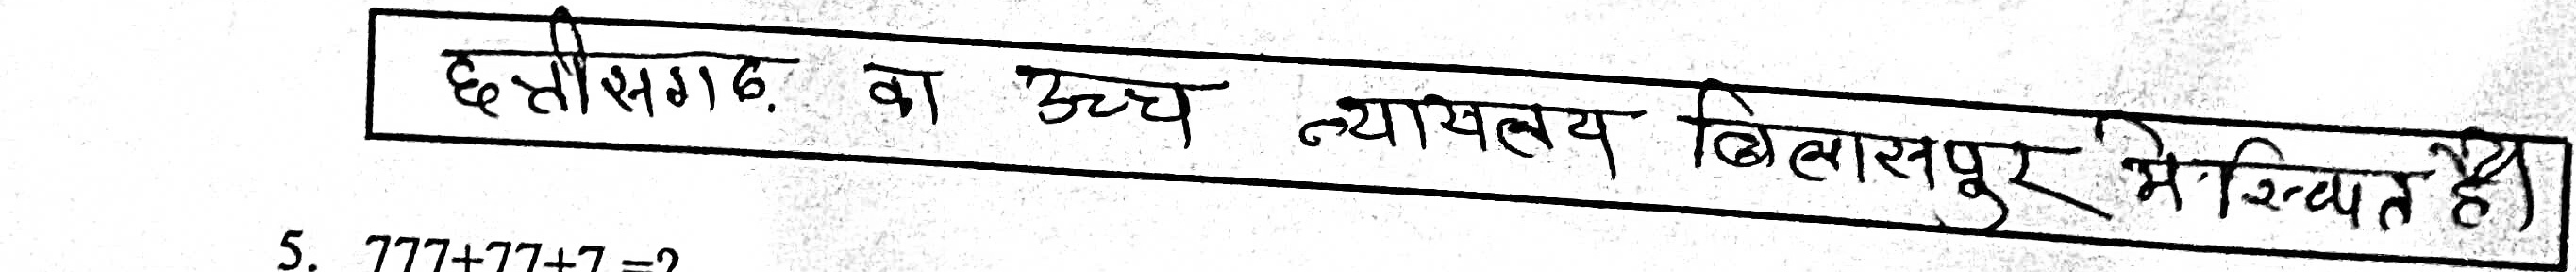 छत्तीसगढ़ का उच्च न्यायलय बिलासपुर मे स्थित है।
5. 777+77+7 =?